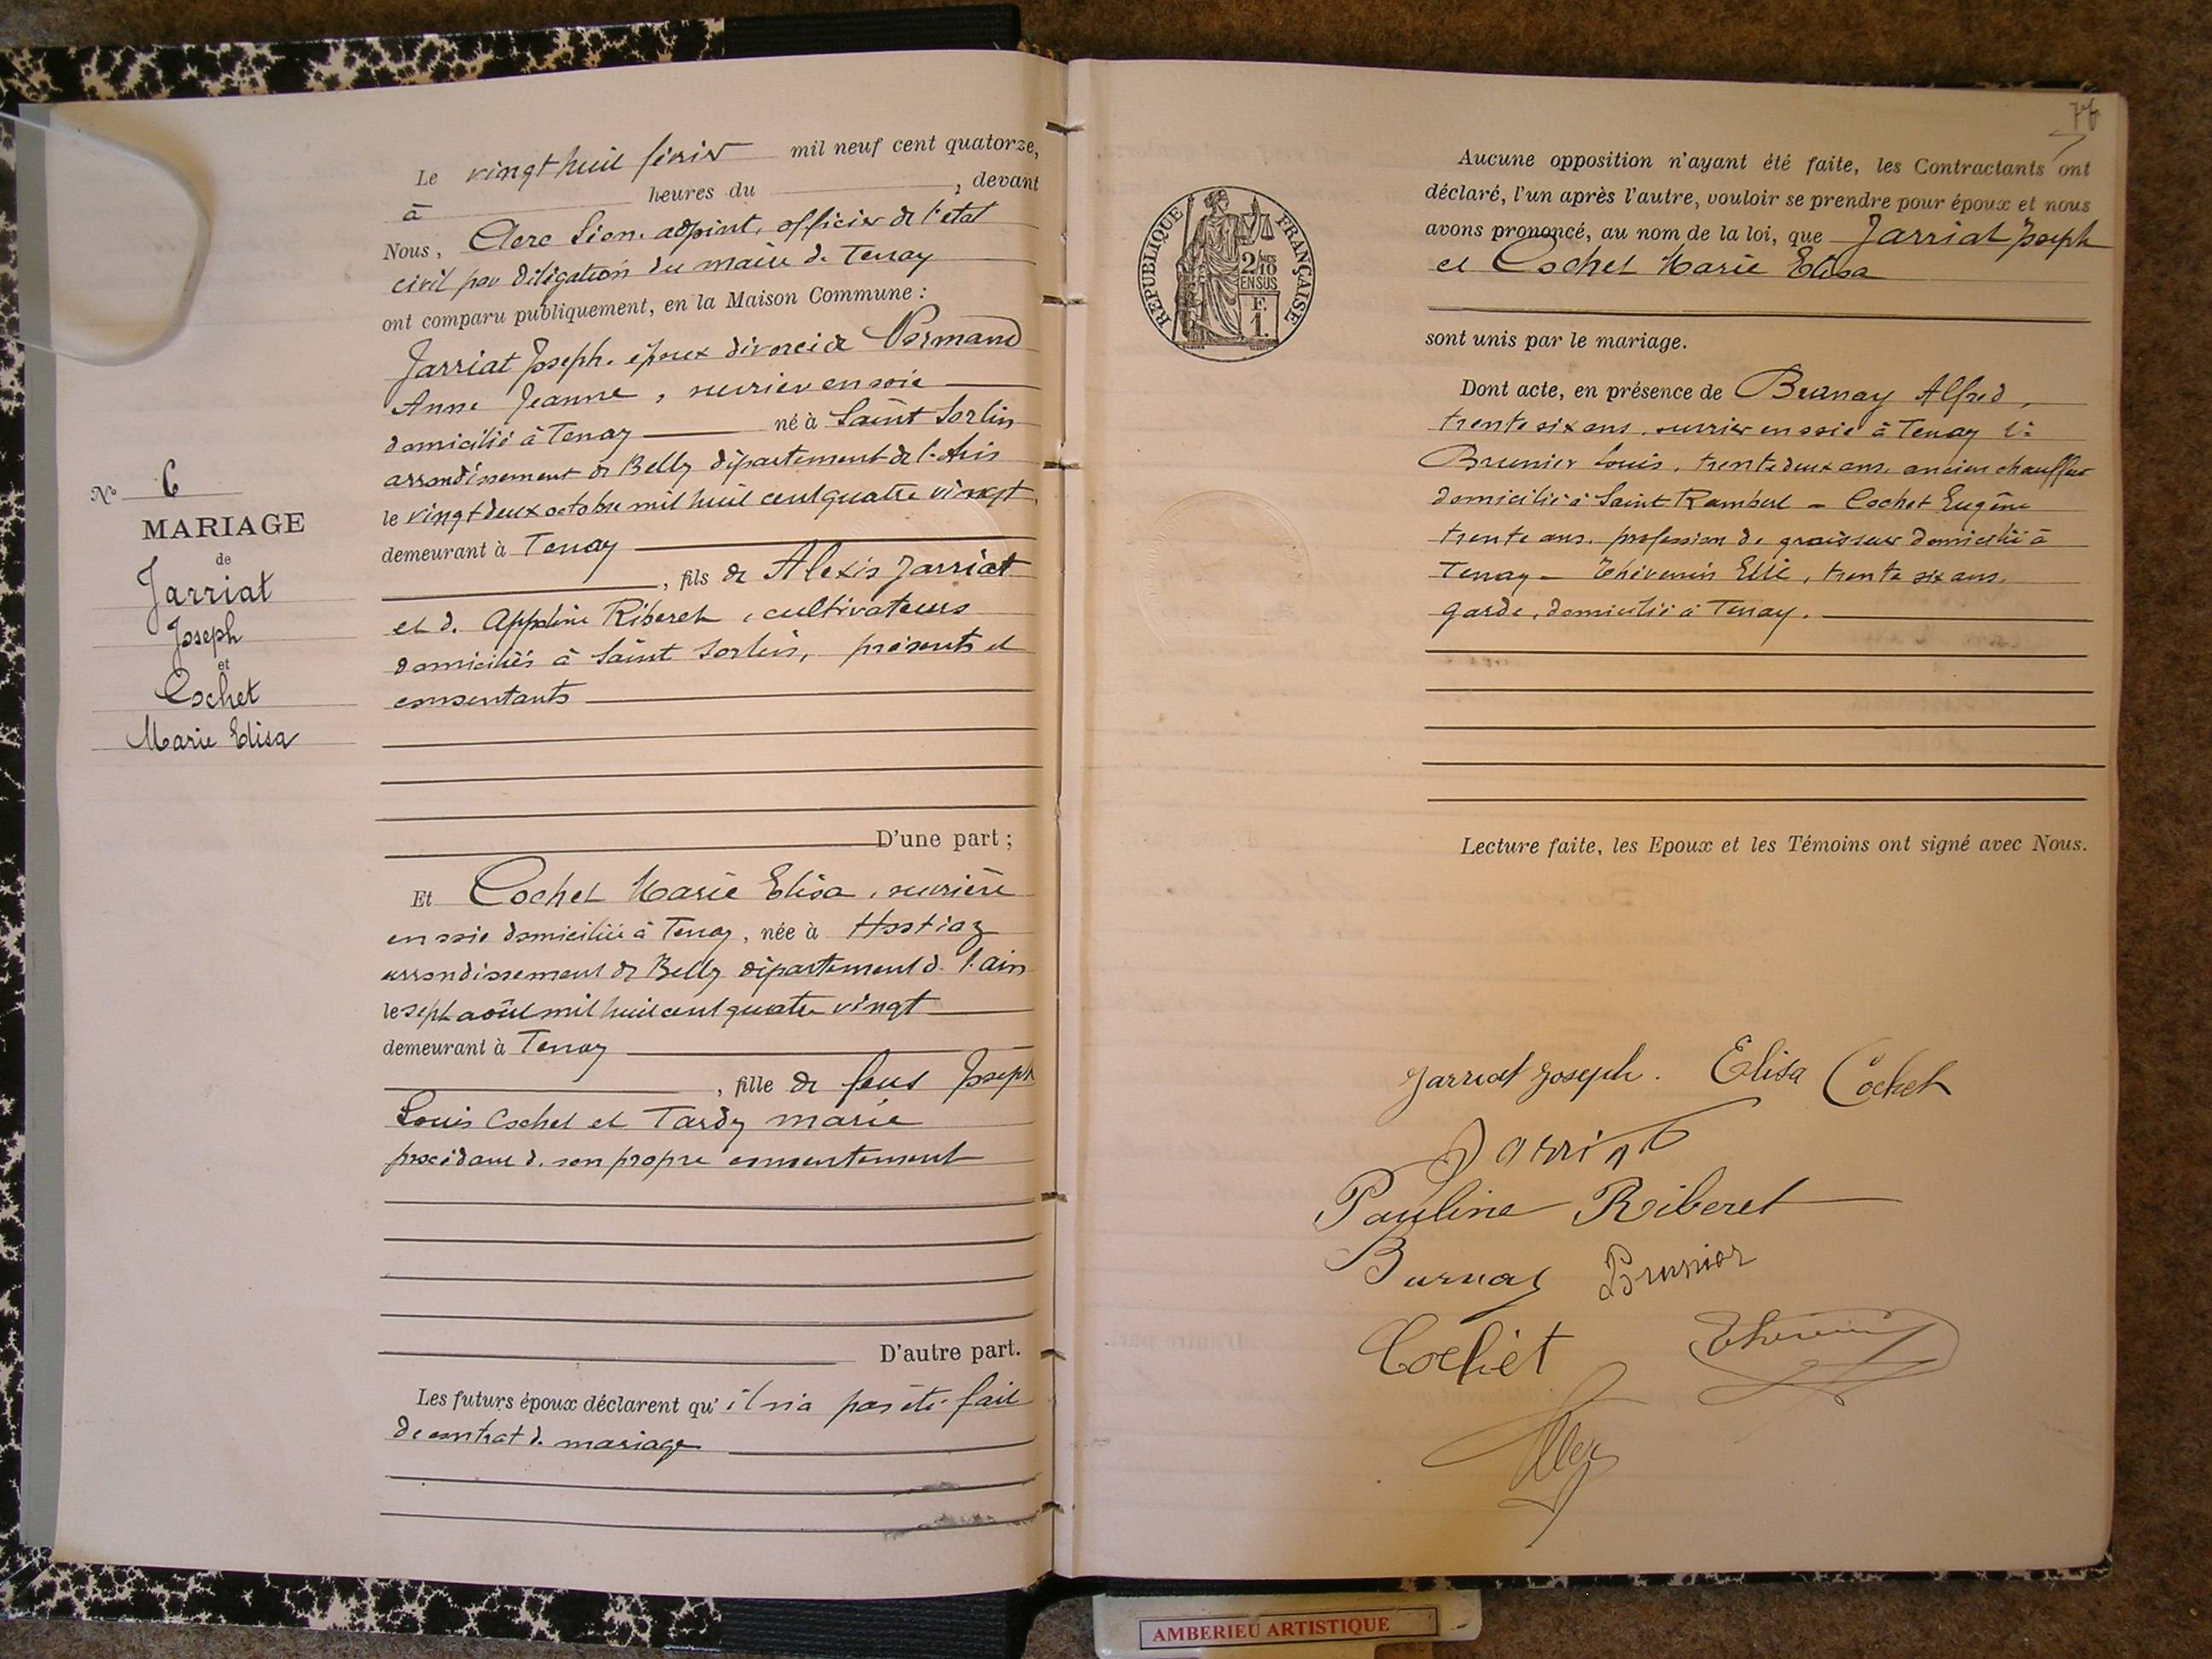 Le vingt huit février mil neuf cent quatorze,
à heures du , devant
Nous, Clerc Léon. adjoint, officier de l'état
civil par délégation du maire de Tenay
ont comparu publiquement, en la Maison Commune :
Jarriat Joseph. époux divorcé de Normand
Anne Jeanne, ouvrier en soie
domicilié à Tenay né à Saint Sorlin
arrondissement de Belley département de l'Ain
le vingt deux octobre mil huit cent quatre vingt
demeurant à Tenay
, fils de Alexis Jarriat
et de Appoline Riberet, cultivateurs
domiciliés à Saint Sorlin, présents et
consentants
D'une part ;
N° 6
MARIAGE
de
Jarriat
Joseph
et
Cochet
Marie Elisa
Et Cochet Marie Elisa, ouvrière
en soie domiciliée à Tenay, née à Hostiaz
arrondissement de Belley département de l'ain
le sept août mil huit cent quatre vingt
demeurant à Tenay
, fille de feus Joseph
Louis Cochet et Tardy marie
procédant de son propre consentement
D'autre part.
Les futurs époux déclarent qu'il n'a pas été fait
de contrat de mariage
76
RÉPUBLIQUE FRANÇAISE
2/10
EN SUS
F.
1.
Aucune opposition n'ayant été faite, les Contractants ont
déclaré, l'un après l'autre, vouloir se prendre pour époux et nous
avons prononcé, au nom de la loi, que Jarriat Joseph
et Cochet Marie Elisa
sont unis par le mariage.
Dont acte, en présence de Burnay Alfred,
trente six ans, ouvrier en soie à Tenay
Brunier Louis, trente deux ans, ancien chauffeur
domicilié à Saint Rambert - Cochet Eugène
trente ans. profession de graisseur domicilié à
Tenay - Thévenin Elie, trente six ans.
garde, domicilié à Tenay.
Lecture faite, les Epoux et les Témoins ont signé avec Nous.
Jarriat Joseph. Elisa Cochet
Jarriat
Pauline Riberet
Burnay Brunier
Cochet Thévenin
AMBERIEU ARTISTIQUE